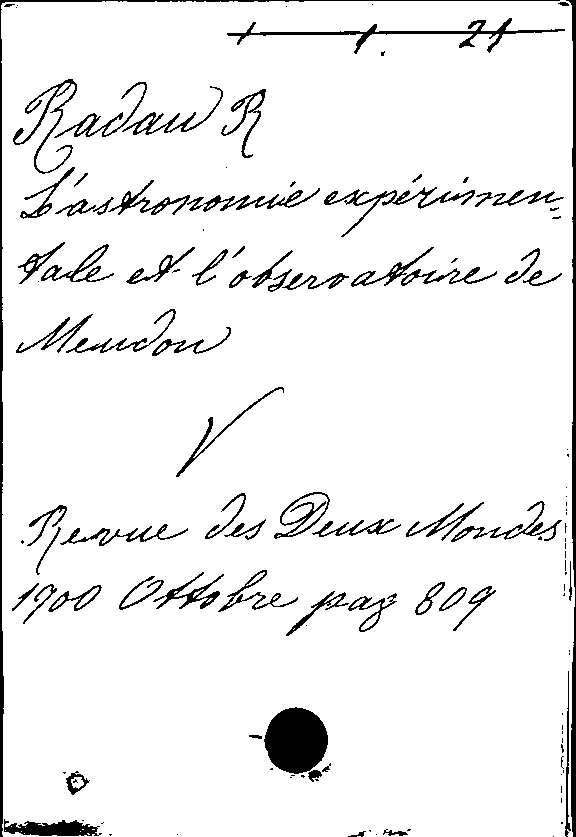 1 1. 21
Radau R
L'astronomie expérimen=
tale et l'observatoire de
Meudon
V
Revue des Deux Mondes
1900 Ottobre pag 809